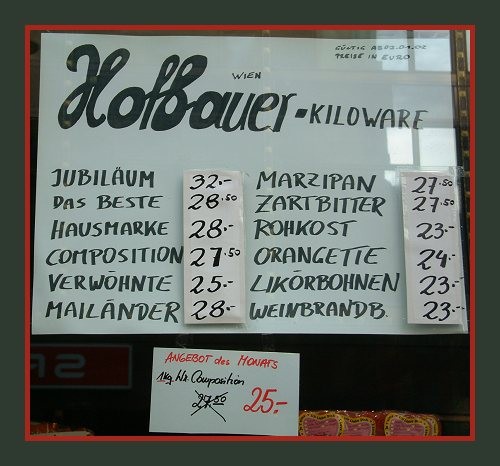 GÜLTIG AB 02.01.02
PREISE IN EURO
WIEN
Hofbauer-KILOWARE
JUBILÄUM 32.-
DAS BESTE 28.50
HAUSMARKE 28.-
COMPOSITION 27.50
VERWÖHNTE 25.-
MAILÄNDER 28.-
MARZIPAN 27.50
ZARTBITTER 27.50
ROHKOST 23.-
ORANGETTE 24.-
LIKÖRBOHNEN 23.-
WEINBRANDB. 23.-
ANGEBOT des MONATS
1kg Wr. Composition
27.50 25.-